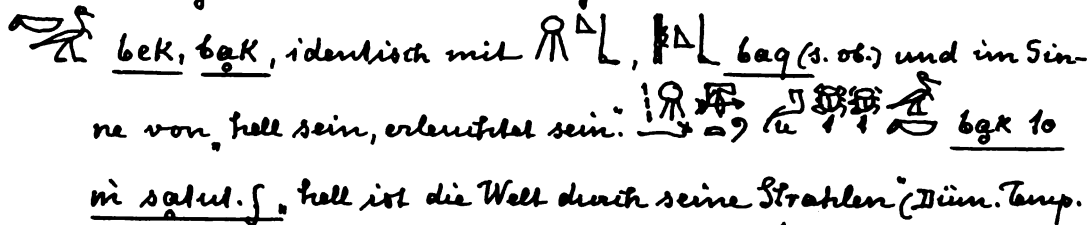 bek, bąk, identisch mit , baq (s. ob.) und im Sin-
ne von „hell sein, erleuchtet sein." bąk to
m sątut.f „hell ist die Welt durch seine Strahlen" (Düm. Temp.